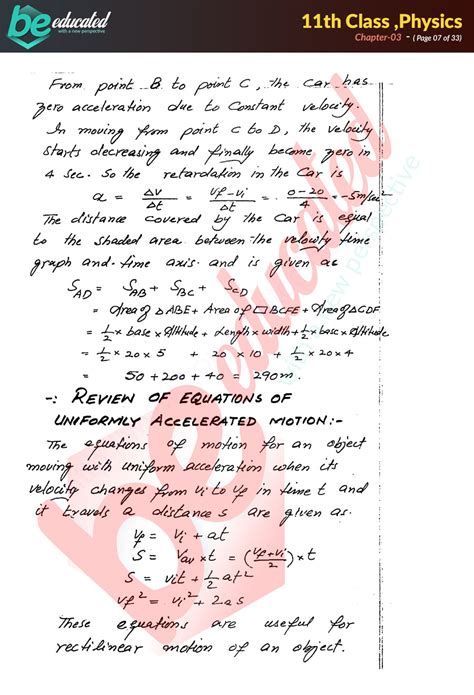 be educated
with a new perspective
11th Class ,Physics
Chapter-03 - ( Page 07 of 33)
From point B to point C, the car has
zero acceleration due to constant velocity.
In moving from point C to D, the velocity
starts decreasing and finally become zero in
4 sec. So the retardation in the car is
a = ΔV/Δt = (Vf-Vi)/Δt = (0-20)/4 = -5m/sec²
The distance covered by the car is equal
to the shaded area between the velocity time
graph and-time axis. and is given as
S_AD = S_AB + S_BC + S_CD
= Area of △ABE + Area of □BCFE + Area of △CDF
= 1/2 × base × Altitude + Length × width + 1/2 × base × Altitude
= 1/2 × 20 × 5 + 20 × 10 + 1/2 × 20 × 4
= 50 + 200 + 40 = 290m.
-: REVIEW OF EQUATIONS OF
UNIFORMLY ACCELERATED MOTION:-
The equations of motion for an object
moving with uniform acceleration when its
velocity changes from Vi to Vf in time t and
it travels a distance S are given as.
Vf = Vi + at
S = Vav × t = ((Vf+Vi)/2) × t
S = Vit + 1/2 at²
Vf² = Vi² + 2as
These equations are useful for
rectilinear motion of an object.
be educated